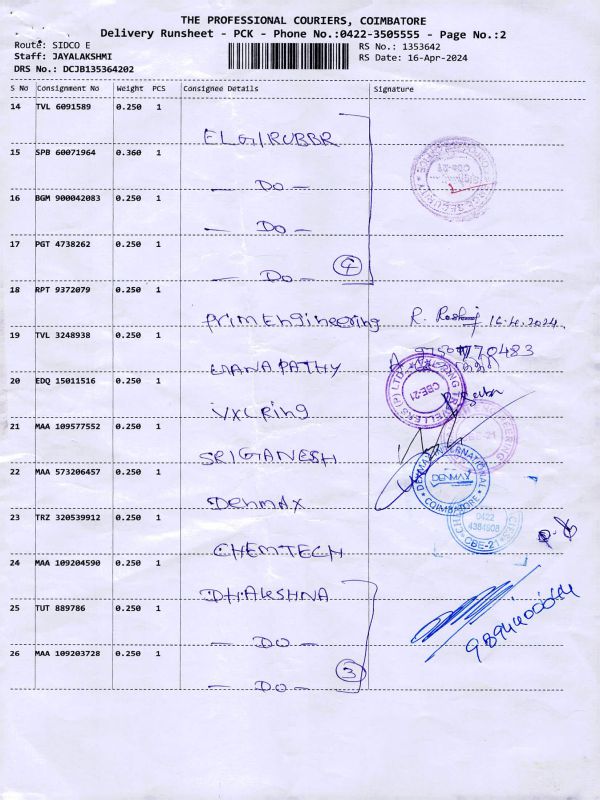 THE PROFESSIONAL COURIERS, COIMBATORE
Delivery Runsheet - PCK - Phone No.:0422-3505555 - Page No.:2
Route: SIDCO E
Staff: JAYALAKSHMI
DRS No.: DCJB135364202
RS No.: 1353642
RS Date: 16-Apr-2024
S No Consignment No Weight PCS Consignee Details Signature
14 TVL 6091589 0.250 1
ELGIRUBBR
15 SPB 60071964 0.360 1
— DO —
16 BGM 900042083 0.250 1
— DO —
17 PGT 4738262 0.250 1
— DO — 4
18 RPT 9372079 0.250 1
Prim Engineering
16.4.2024
19 TVL 3248938 0.250 1
20 EDQ 15011516 0.250 1
VXL Ring
CBE-21
21 MAA 109577552 0.250 1
SRIGANESH
22 MAA 573206457 0.250 1
DENMAX
DENMAX INTERNATIONAL
DENMAX
COIMBATORE
23 TRZ 320539912 0.250 1
CHEMTECH
0422
4384908
CBE-21
24 MAA 109204590 0.250 1
DHAKSHNA
25 TUT 889786 0.250 1
— DO —
26 MAA 109203728 0.250 1
— DO — 3